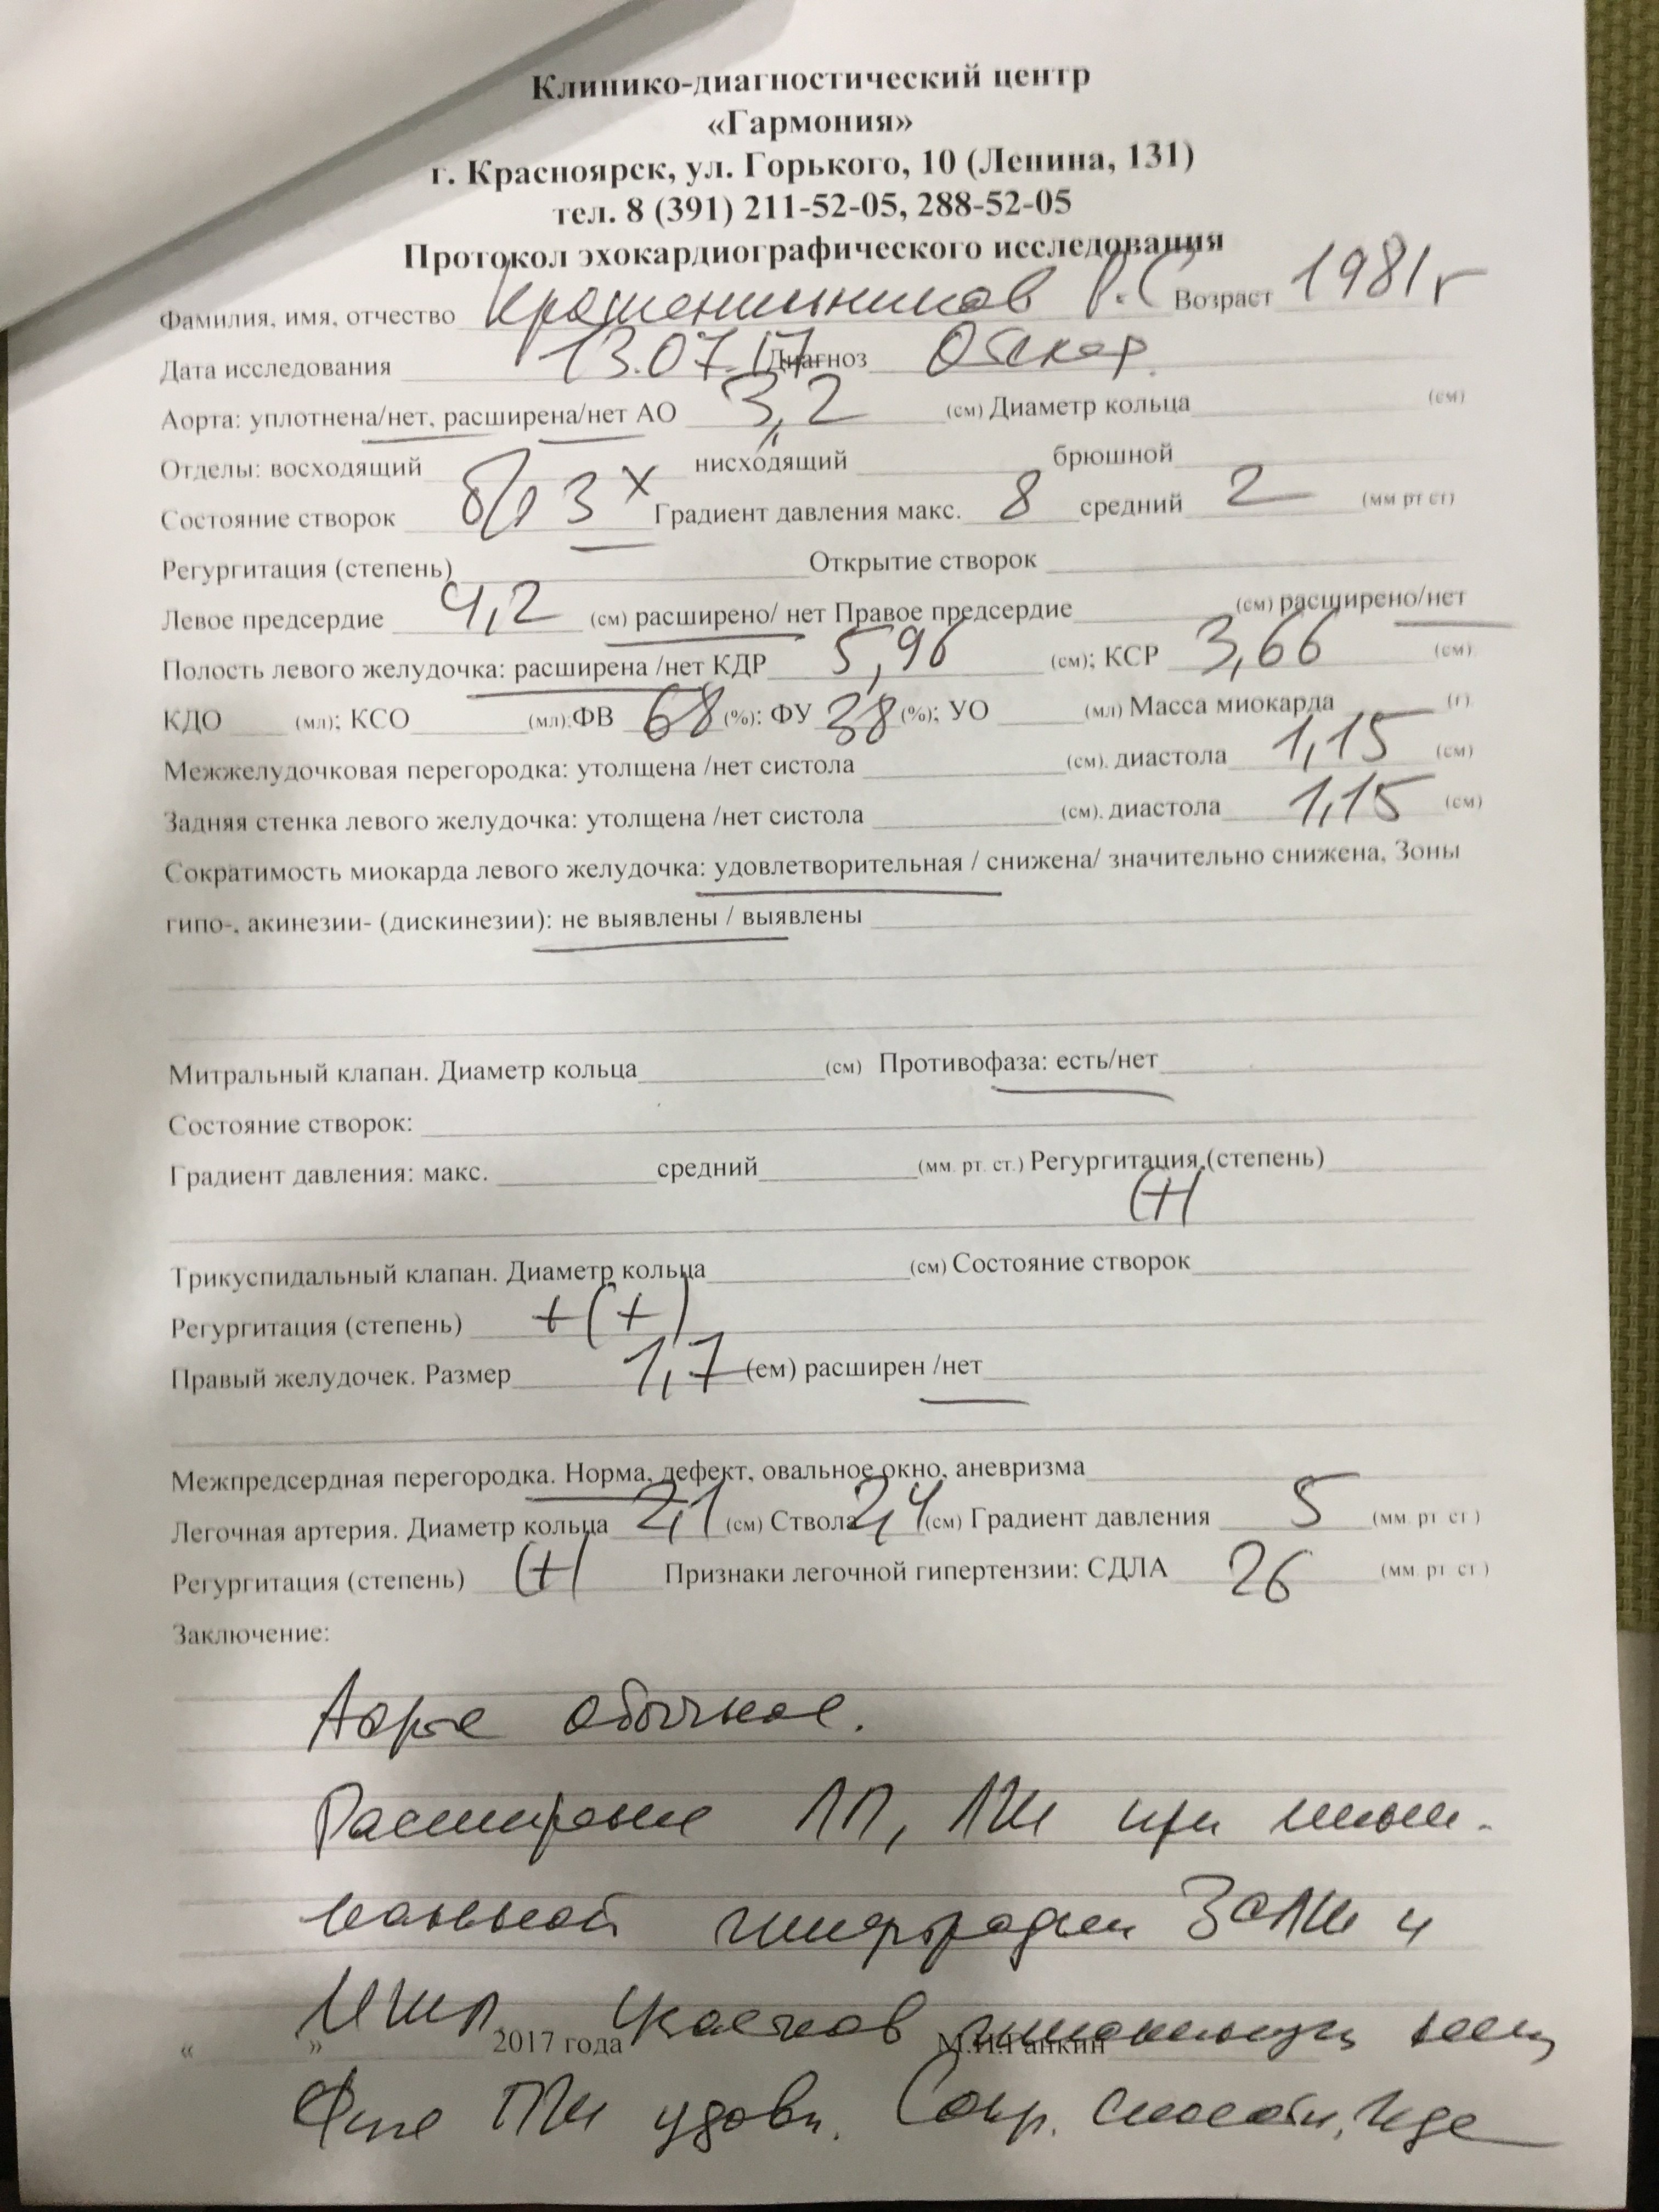 Клинико-диагностический центр
«Гармония»
г. Красноярск, ул. Горького, 10 (Ленина, 131)
тел. 8 (391) 211-52-05, 288-52-05
Протокол эхокардиографического исследования
Фамилия, имя, отчество Крашенинников Р.С Возраст 1981г
Дата исследования 13.07.17 Диагноз Обслед.
Аорта: уплотнена/нет, расширена/нет АО 3,2 (см) Диаметр кольца (см)
Отделы: восходящий нисходящий брюшной
Состояние створок б/о 3х Градиент давления макс. 8 средний 2 (мм рт ст)
Регургитация (степень) Открытие створок
Левое предсердие 4,2 (см) расширено/ нет Правое предсердие (см) расширено/нет
Полость левого желудочка: расширена /нет КДР 5,96 (см); КСР 3,66 (см)
КДО (мл); КСО (мл).ФВ 68 (%): ФУ 38 (%); УО (мл) Масса миокарда (г)
Межжелудочковая перегородка: утолщена /нет систола (см). диастола 1,15 (см)
Задняя стенка левого желудочка: утолщена /нет систола (см). диастола 1,15 (см)
Сократимость миокарда левого желудочка: удовлетворительная / снижена/ значительно снижена, Зоны
гипо-, акинезии- (дискинезии): не выявлены / выявлены
Митральный клапан. Диаметр кольца (см) Противофаза: есть/нет
Состояние створок:
Градиент давления: макс. средний (мм. рт. ст.) Регургитация (степень)
(+)
Трикуспидальный клапан. Диаметр кольца (см) Состояние створок
Регургитация (степень) +(+)
Правый желудочек. Размер 1,7 (см) расширен /нет
Межпредсердная перегородка. Норма, дефект, овальное окно, аневризма
Легочная артерия. Диаметр кольца 2,1 (см) Ствола 2,4 (см) Градиент давления 5 (мм. рт ст )
Регургитация (степень) (+) Признаки легочной гипертензии: СДЛА 26 (мм. рт ст )
Заключение:
Аорта обычная.
Расширение ЛП, ЛЖ при мини-
мальной гипертрофии ЗСЛЖ и
МЖП. Участков гипокинезии нет
« » 2017 года М.И.Гапкин
Фция ПЖ удовл. Сокр. способн.